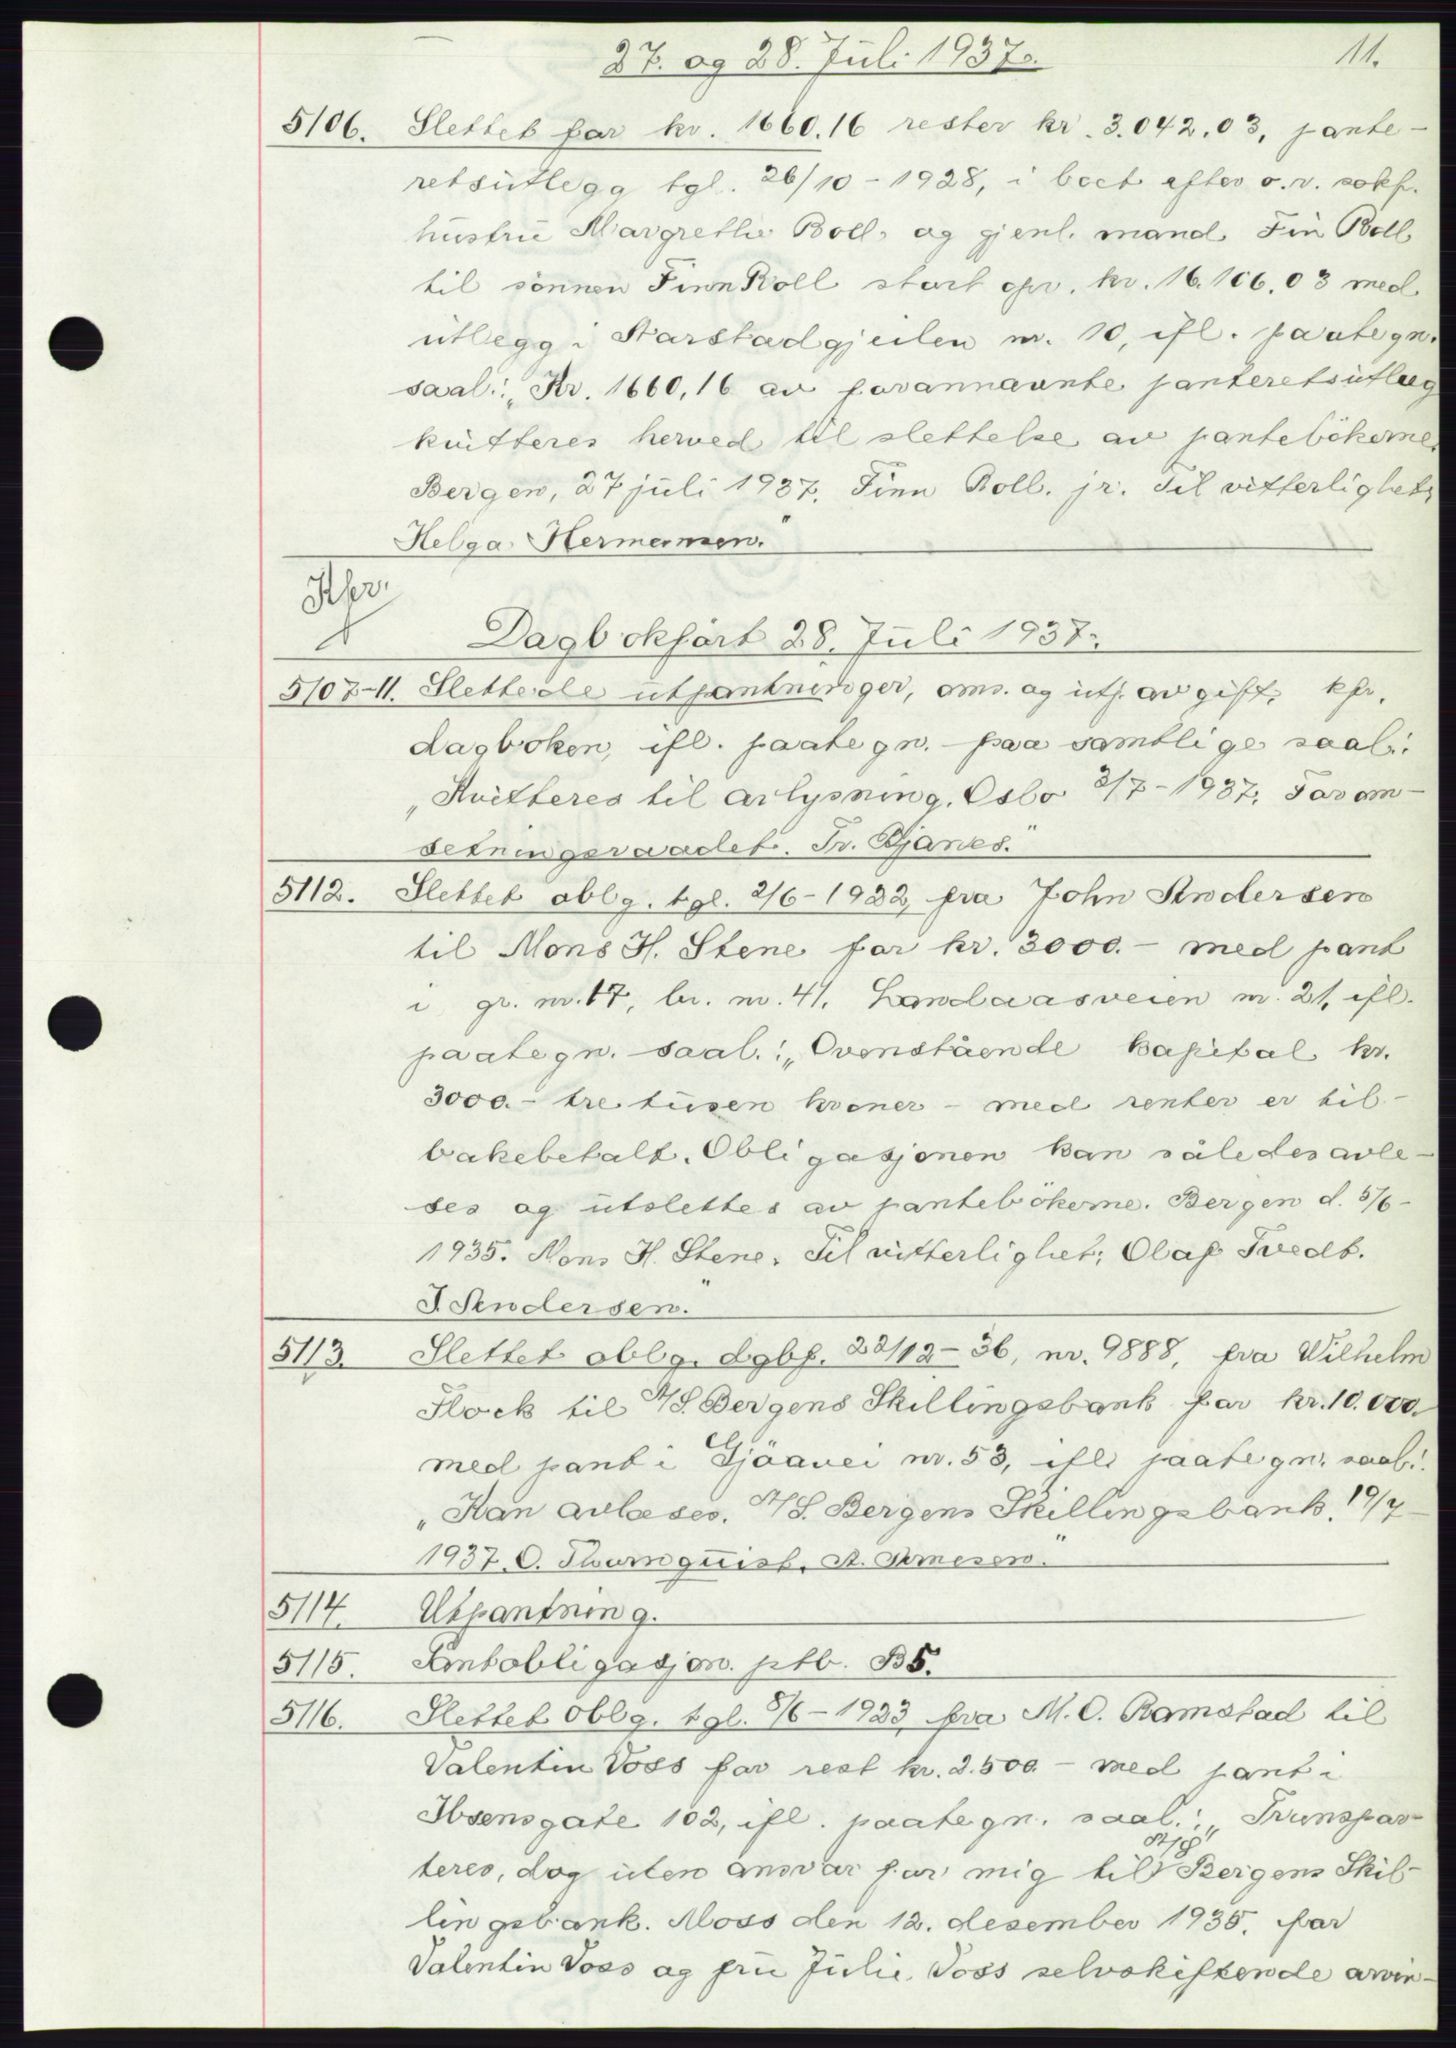 27. og 28. Juli 1937.
11.
5106. Slettet for kr. 1660.16 rester kr. 3.042.03, pante-
retsutlegg tgl. 26/10-1928, i boet efter o.r. sakf.
hustru Margrethe Boll, og gjenl. mand Fin Boll
til sönnen Finn Roll stort opr. kr. 16.106.03 med
utlegg i Starstadgjeilen nr. 10, ifl. paategn.
saal.: „Kr. 1660,16 av forannævnte panteretsutlæg
kvitteres herved til slettelse av pantebökerne.
Bergen, 27 juli 1937. Finn Roll. jr. Til vitterlighet,
Helga Hermansen."
Kfr.
Dagbokfört 28. Juli 1937.
5107-11. Slettede utpantninger, oms. og utj. avgift, kfr.
dagboken, ifl. paategn. paa samtlige saal.:
„Kvitteres til avlysning. Oslo 3/7-1937. For om-
setningsraadet. Fr. Bjanes."
5112. Slettet oblg. tgl. 2/6-1932, fra John Andersen
til Mons H. Stene for kr. 3000.- med pant
i gr. nr. 17, br. nr. 41. Landaasveien nr. 21, ifl.
paategn. saal.: „Ovenstående kapital kr.
3000.- tre tusen kroner - med renter er til-
bakebetalt. Obligasjonen kan således avle-
ses og utslettes av pantebökerne. Bergen d. 5/6-
1935. Mons H. Stene. Til vitterlighet: Olaf Tvedt.
J. Andersen."
5113. Slettet oblg. dgbf. 22/12-36, nr. 9888, fra Wilhelm
Flock til A/S. Bergens Skillingsbank for kr. 10.000.-
med pant i Sjöavei nr. 53, ifl. paategn. saal.:
„Kan avlæses. A/S. Bergens Skillingsbank. 19/7-
1937. O. Thornquist. A. Arnesen."
5114. Utpantning.
5115. Pantobligasjon. ptb. B5.
5116. Slettet oblg. tgl. 8/6-1923, fra M. O. Ramstad til
Valentin Voss for rest kr. 2.500.- med pant i
Ibsensgate 102, ifl. paategn. saal.: „Transpor-
teres, dog uten ansvar for mig til A/S Bergens Skil-
lingsbank. Moss den 12. desember 1935. for
Valentin Voss og fru Julie Voss selvskiftende arvin-